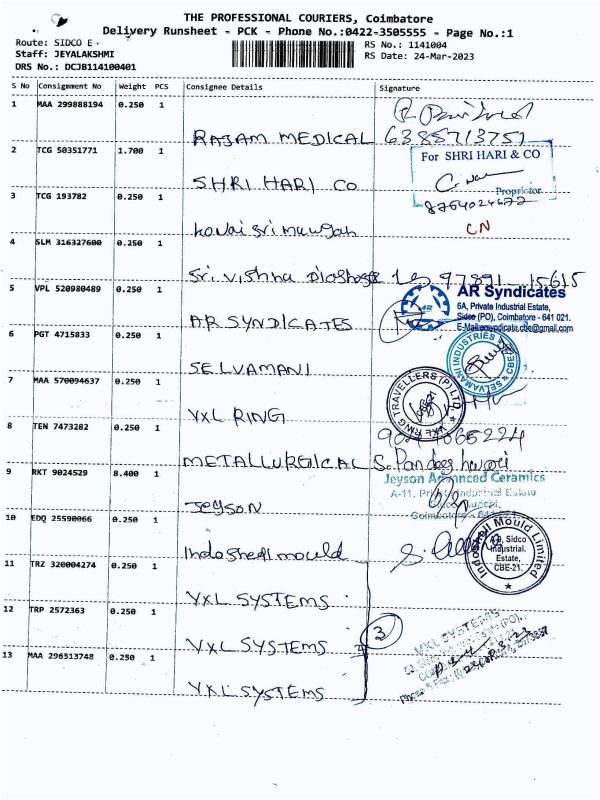 THE PROFESSIONAL COURIERS, Coimbatore
Delivery Runsheet - PCK - Phone No.:0422-3505555 - Page No.:1
Route: SIDCO E
Staff: JEYALAKSHMI
DRS No.: DCJB114100401
RS No.: 1141004
RS Date: 24-Mar-2023
S No Consignment No Weight PCS Consignee Details Signature
1 MAA 299888194 0.250 1
RAJAM MEDICAL 6385713751
2 TCG 50351771 1.700 1
For SHRI HARI & CO
Proprietor
SHRI HARI CO 8754024672
3 TCG 193782 0.250 1
kovai sri CN
4 SLM 316327600 0.250 1
Sri. Vishnu 97891-15615
5 VPL 520980489 0.250 1
AR Syndicates
6A, Private Industrial Estate,
Sidco (PO), Coimbatore - 641 021.
E-Mail:arsyndicate.cbe@gmail.com
AR SYNDICATES
6 PGT 4715833 0.250 1
SELVAMANI INDUSTRIES CBE
SELVAMANI
7 MAA 570094637 0.250 1
VXL RING TRAVELLERS (P) LTD.
VXL RING
8 TEN 7473282 0.250 1
METALLURGICAL S. Pandeeshwari
9 RKT 9024529 8.400 1
Jeyson Advanced Ceramics
A-11, Private Industrial Estate
Coimbatore - 641 021
Jeyson
10 EDQ 25590066 0.250 1
Indoshell Mould Limited
A-9, Sidco
Industrial.
Estate,
CBE-21.
Indoshell mould
11 TRZ 320004274 0.250 1
VXL SYSTEMS
12 TRP 2572363 0.250 1
3
VXL SYSTEMS
VXL SYSTEMS
13 MAA 296513748 0.250 1
VXL SYSTEMS